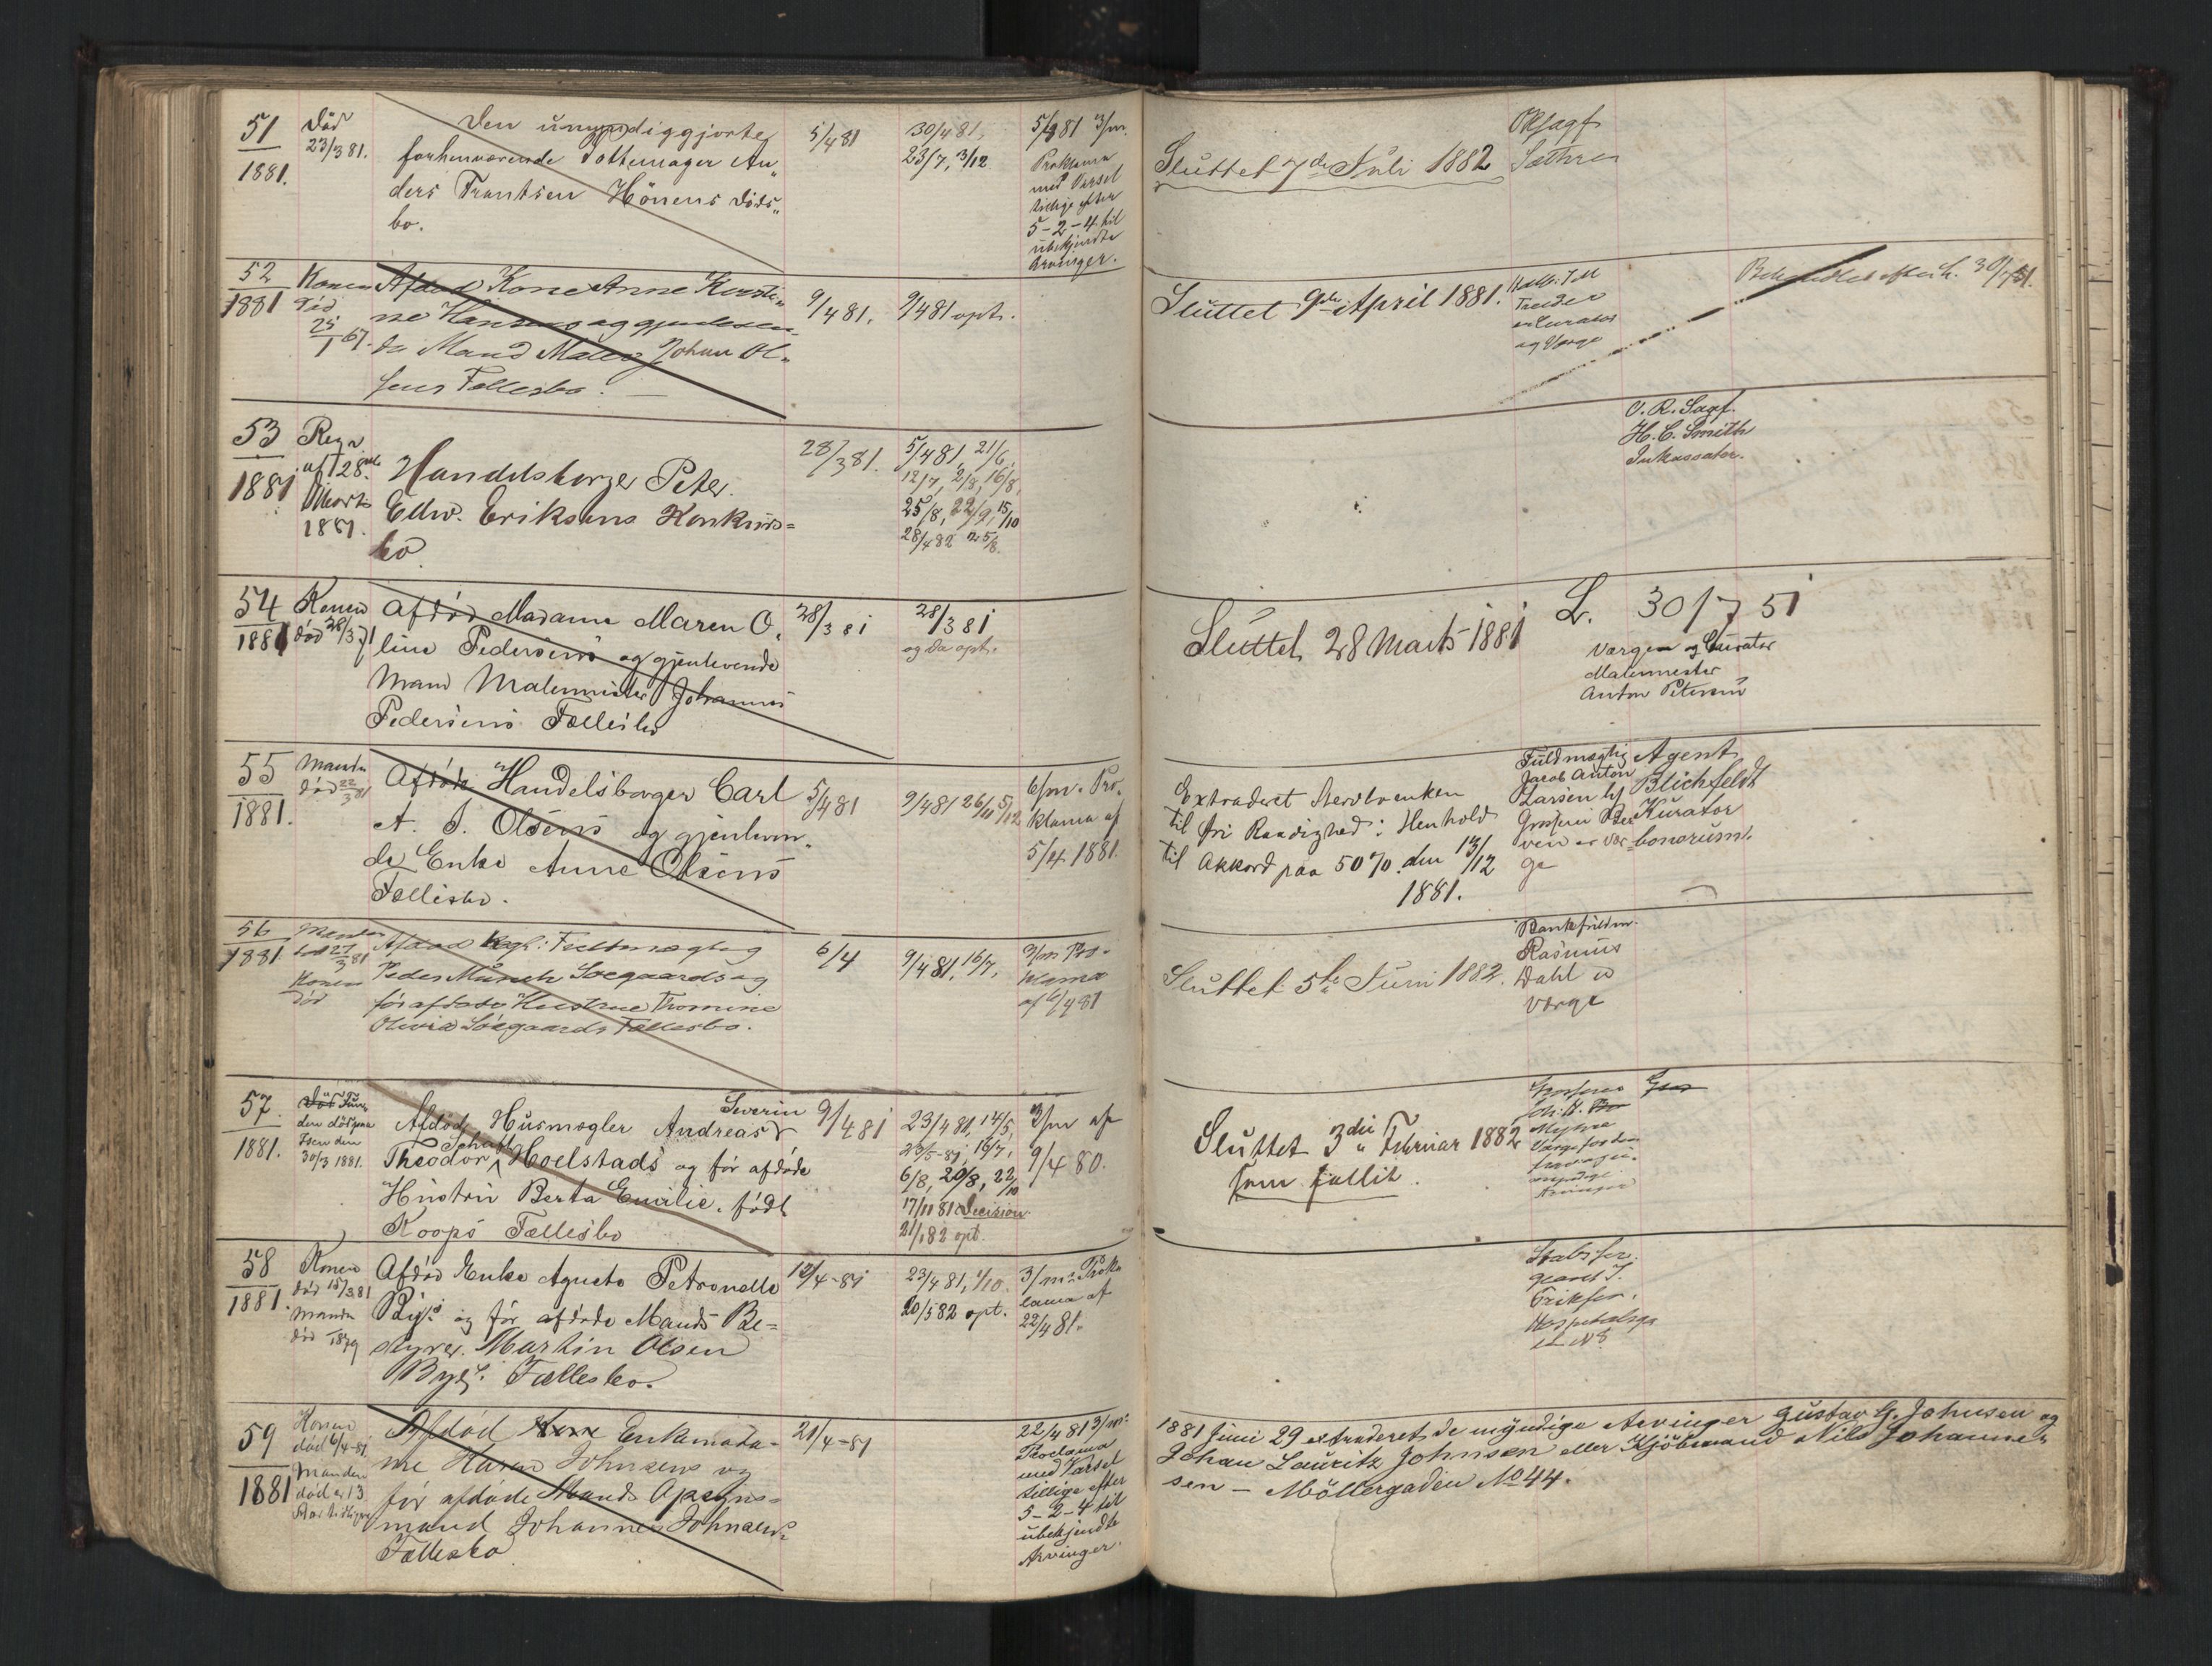 51
1881.
Död
23/3 81.
Den umyndiggjorte
forhenværende Pottemager An„
ders Frantsen Hönens Döds„
bo.
5/4 81
30/4 81,
23/7, 3/12
5/4 81 3/m.
Proklama
med Varsel
tillige efter
5-2-4 til
ubekjendte
Arvinger.
Sluttet 7de Juli 1882
Oksagf.
Sæthre
52
1881
Konen
död
25/1 67.
Afdöd Kone Anne Kirsti„
ne Hansens og gjenleven„
de Mand Maler Johan Ol„
sens Fællesbo.
9/4 81.
9/4 81 opt.
Sluttet 9de April 1881.
Curator
og Værge
53
1881
af 28de
Marts
1881.
Handelsborger Peter
Edw. Eriksens Konkurs=
bo.
28/3 81.
5/4 81, 21/6,
12/7, 2/8, 16/8,
25/8, 22/9, 15/10
28/4 82 25/8.
O. R. Sagf.
H. C. Smith
Inkassator.
54
1881
Konen
död 28/3 71
Afdöd Madame Maren O„
line Pedersens og gjenlevende
Mand Malermester Johannes
Pedersens Fællesbo
28/3 81
28/3 81
og da opt.
Sluttet 28 Marts 1881
L. 30/7 51
Værge og Curator
Malermester
Anton Petersen
55
1881.
Manden
död 22/3 81
Afdöde Handelsborger Carl
A. J. Olsens og gjenleven„
de Enke Anne Olsens
Fællesbo.
5/4 81
9/4 81 26/11 5/12
6/m. Pro„
klama af
5/4 1881.
Extraderet Stervboenken
til fri Raadighed i Henhold
til Akkord paa 50% den 13/12
1881.
Fuldmægtig
Jacob Anton
Larsen
ven er Vær=
ge
Agent
Blichfeldt
Kurator
bonorum.
56
1881.
Manden
död 27/3 81
Konen
död
Afdöd Kgl: Fuldmægtig
Peder Münch Soegaards og
för afdöde Hustrue Thomine
Olivia Söegaards Fællesbo.
6/4
9/4 81, 16/7,
3/m Pro-
klama
af 6/4 81
Sluttet 5te Juni 1882.
Bankfuldm.
Rasmus
Dahl er
Værge
57
1881.
30/3 1881.
Afdöde Husmægler Andreas Severin
Theodor Hoelstads og för afdöde
Hustru Berta Emilie, födt
Koops Fællesbo
9/4 81
23/4 81, 14/5,
23/5-81, 16/7,
6/8, 20/8, 22/10
17/11 81 Decision
21/1 82 opt.
3/m af
9/4 80.
Sluttet 3die Februar 1882
som fallit.
58
1881.
Konen
död 15/3 81
Manden
död 1879
Afdöd Enke Agusta Petronelle
Bys og för afdöde Mands Be=
styrer Martin Olsen
Bys. Fællesbo.
12/4-81
23/4 81, 1/10.
20/5 82 opt.
3/m: Prok
lama af
22/4 81.
Stabsser„
geant J.
Eriksen,
59
1881
Konen
död 6/4-81
Manden
död 13
Aar tidligere
Afdöd Kone Enkemada-
me Karen Johnsens og
för afdöde Mands Opsyns-
mand Johannes Johnsens
Fællesbo
21/4-81
22/4 81 3/m:
Proclama
med Varsel
tillige efter
5-2-4 til
ubekjendte
Arvinger.
1881 Juni 29 extraderet de myndige Arvinger Gustav G. Johnsen og
Johan Lauritz Johnsen eller Kjöbmand Nils Johanne-
sen - Möllergaden No 44.